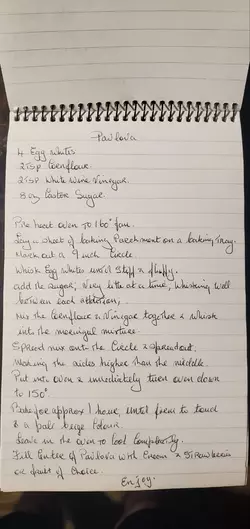 Pavlova
4 Egg whites
2 tsp Cornflour.
2 tsp White Wine Vinegar.
8 oz Caster Sugar.
Pre heat oven to 160° fan.
Lay a sheet of baking Parchment on a baking tray.
Mark out a 9 inch Circle.
Whisk Egg whites until stiff & fluffy.
add the sugar, very little at a time, whisking well
between each addition,
Mix the Cornflour & Vinegar together & whisk
into the meringue mixture.
Spread mix onto the Circle & spread out.
Making the sides higher than the middle.
Put into oven & immediately turn oven down
to 150°.
Bake for approx 1 hour, until firm to touch
& a pale beige Colour.
Leave in the oven to Cool Completely.
Fill Centre of Pavlova with Cream & Strawberries
or fruit of Choice.
Enjoy.